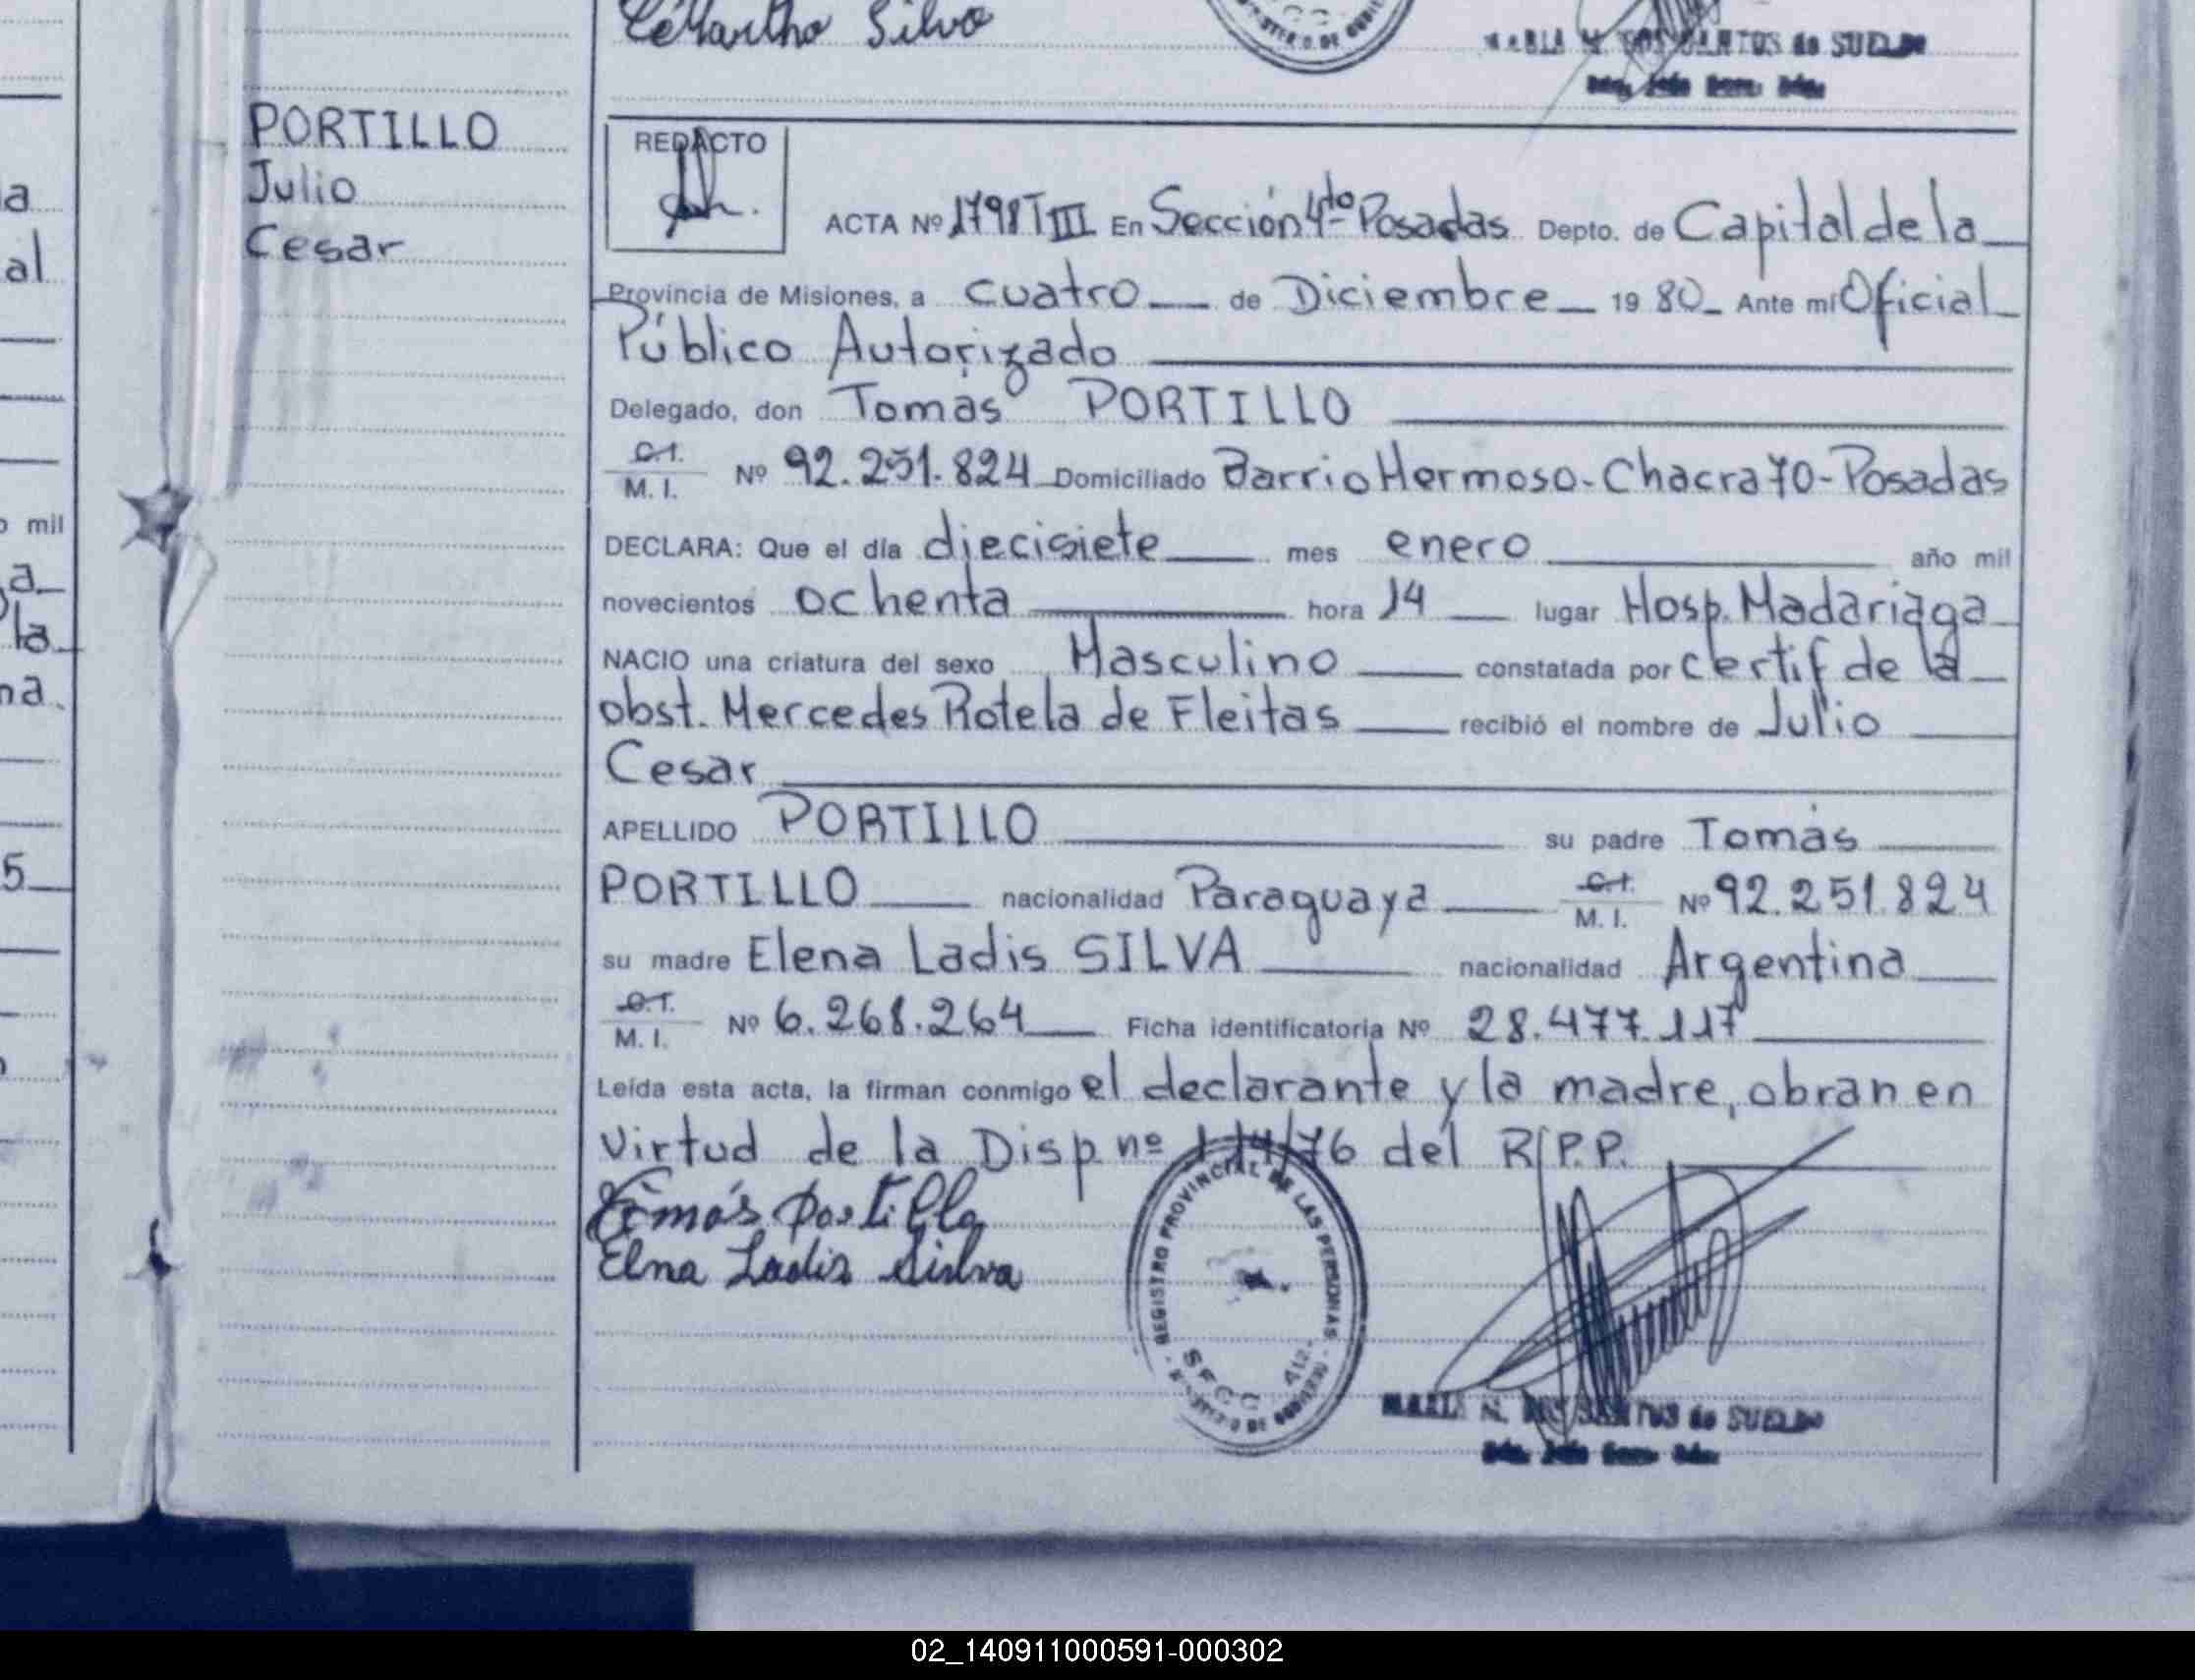 CeMartha Silva
MARIA M. DOS SANTOS de SUELDO
PORTILLO
Julio
Cesar
REDACTO
ACTA Nº 1798 T III En Sección 4to Posadas Depto. de Capital de la
Provincia de Misiones, a cuatro de Diciembre 1980 Ante mí Oficial
Público Autorizado
Delegado, don Tomas PORTILLO
C.I.
M. I. Nº 92.251.824 Domiciliado Barrio Hermoso - Chacra 70 - Posadas
DECLARA: Que el día diecisiete mes enero año mil
novecientos ochenta hora 14 lugar Hosp. Madariaga
NACIO una criatura del sexo Masculino constatada por certif de la
obst. Mercedes Rotela de Fleitas recibió el nombre de Julio
Cesar
APELLIDO PORTILLO su padre Tomás
PORTILLO nacionalidad Paraguaya C.I. M. I. Nº 92.251.824
su madre Elena Ladis SILVA nacionalidad Argentina
C.I.
M. I. Nº 6.268.264 Ficha identificatoria Nº 28.477.117
Leída esta acta, la firman conmigo el declarante y la madre, obran en
virtud de la Disp. nº 114/76 del R.P.P.
Tomás Portillo
Elna Ladis Silva
REGISTRO PROVINCIAL DE LAS PERSONAS
SECC. 4ta.
MARIA M. DOS SANTOS de SUELDO
a
al
o mil
a
la
na
5
02_140911000591-000302